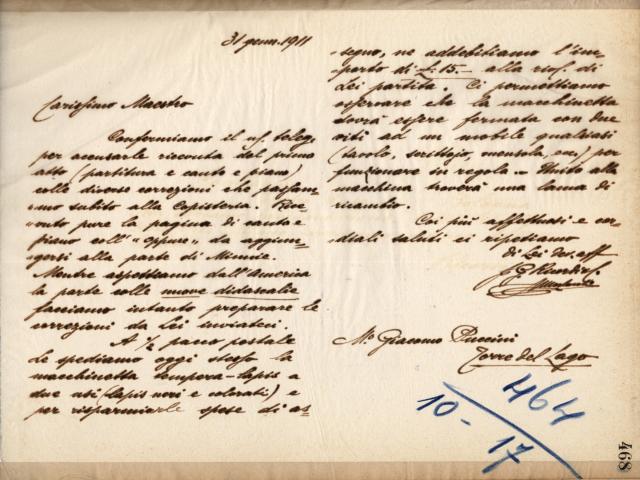 31 genn. 1911
Carissimo Maestro
Confermiamo il ns/ teleg.
per accusarle ricevuta del primo
atto (partitura e canto e piano)
colle diverse correzioni che passam-
mo subito alla Copisteria. Rice-
vuto pure la pagina di canto e
piano coll' "oppure" da aggiun-
gersi alla parte di Minnie.
Mentre aspettiamo dall'America
la parte colle nuove didascalie
facciamo intanto preparare le
correzioni da Lei inviateci.
A 1/2 pacco postale
Le spediamo oggi stesso la
macchinetta tempera-lapis a
due usi (lapis neri e colorati) e
per risparmierle spese di as-
segno, ne addebitiamo l'im-
porto di L. 15.- alla risp. di
Lei partita. Ci permettiamo
osservare che la macchinetta
dovrà essere fermata con due
viti ad un mobile qualsiasi
(tavolo, scrittojo, mensola, ecc.) per
funzionare in regola. - Unito alla
macchina troverà una lama di
ricambio.
Coi più affettuosi e cor-
diali saluti ci ripetiamo
di Lei dev. aff.
G. Ricordi & C.
Mo Giacomo Puccini
Torre del Lago
464
10 - 17
468